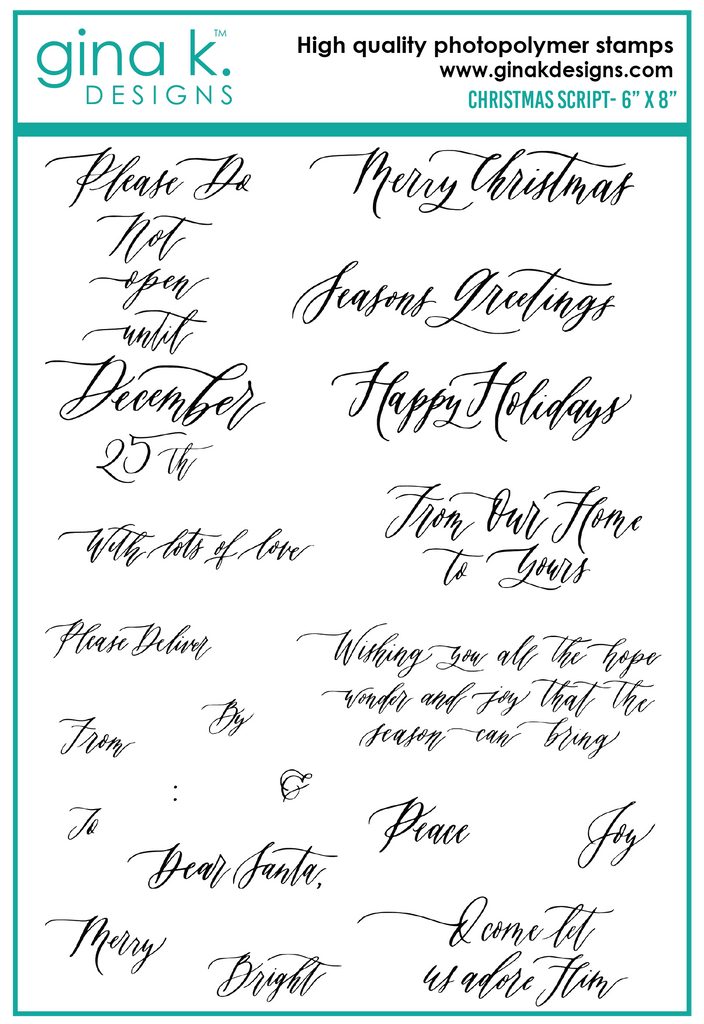 gina k.™
DESIGNS
High quality photopolymer stamps
www.ginakdesigns.com
CHRISTMAS SCRIPT- 6” X 8”
Please Do
Not
open
until
December
25th
With lots of love
Please Deliver
By
From
:
&
To
Dear Santa,
Merry
Bright
Merry Christmas
Seasons Greetings
Happy Holidays
From Our Home
to Yours
Wishing you all the hope
wonder and joy that the
season can bring
Peace
Joy
O come let
us adore Him